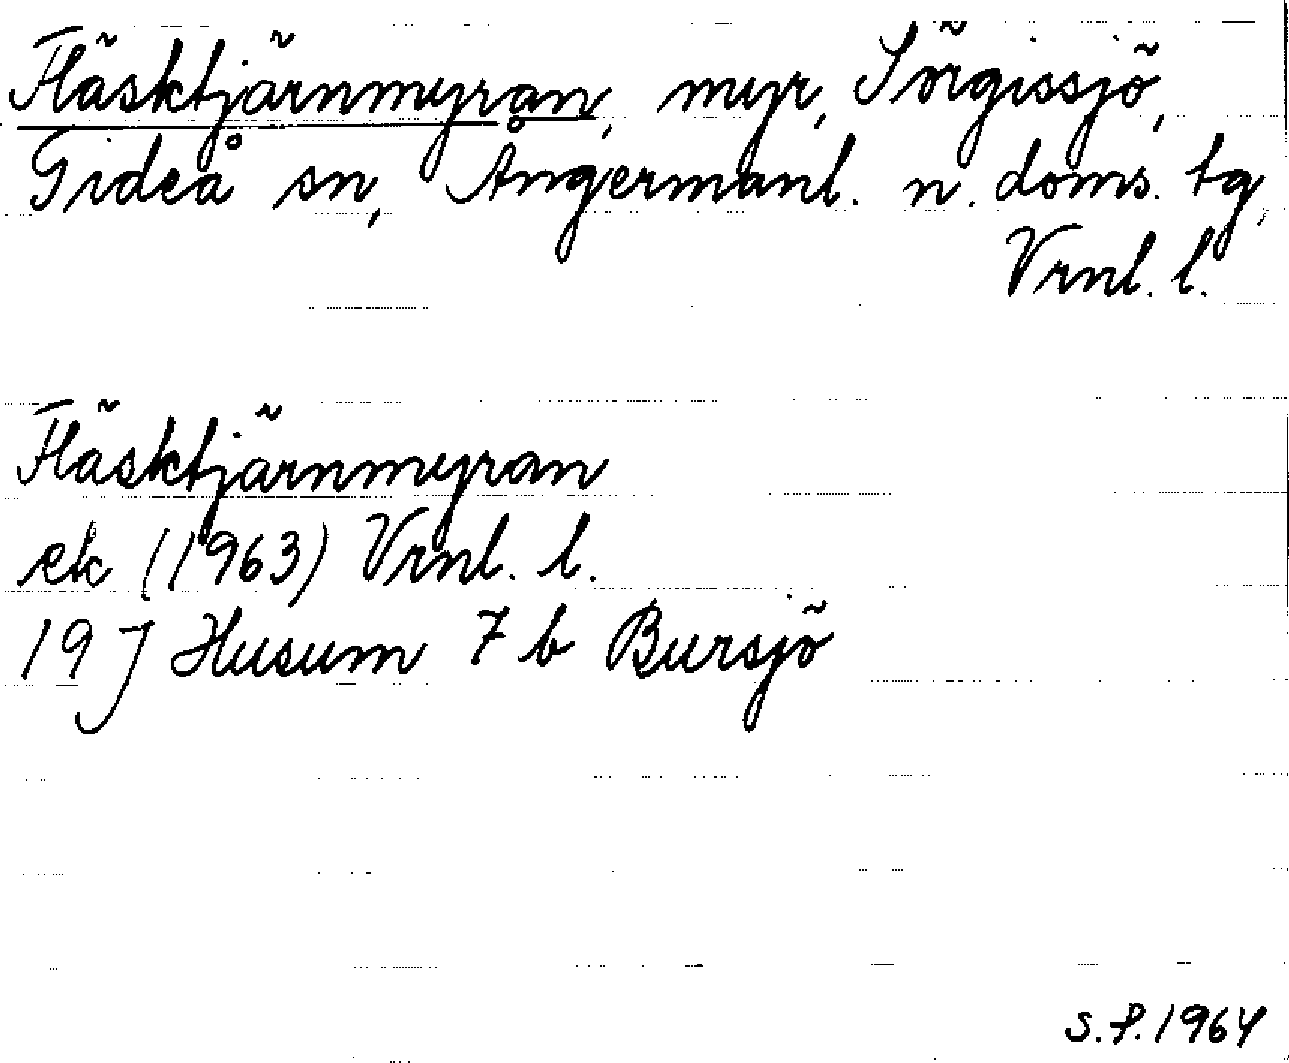 Fläsktjärnmyran, myr, Sörgissjö,
Gideå sn, Ångermanl. n. doms. tg,
Vrnl. l.
Fläsktjärnmyran
ek (1963) Vrnl. l.
19 J Husum 7 b Bursjö
s.f. 1964